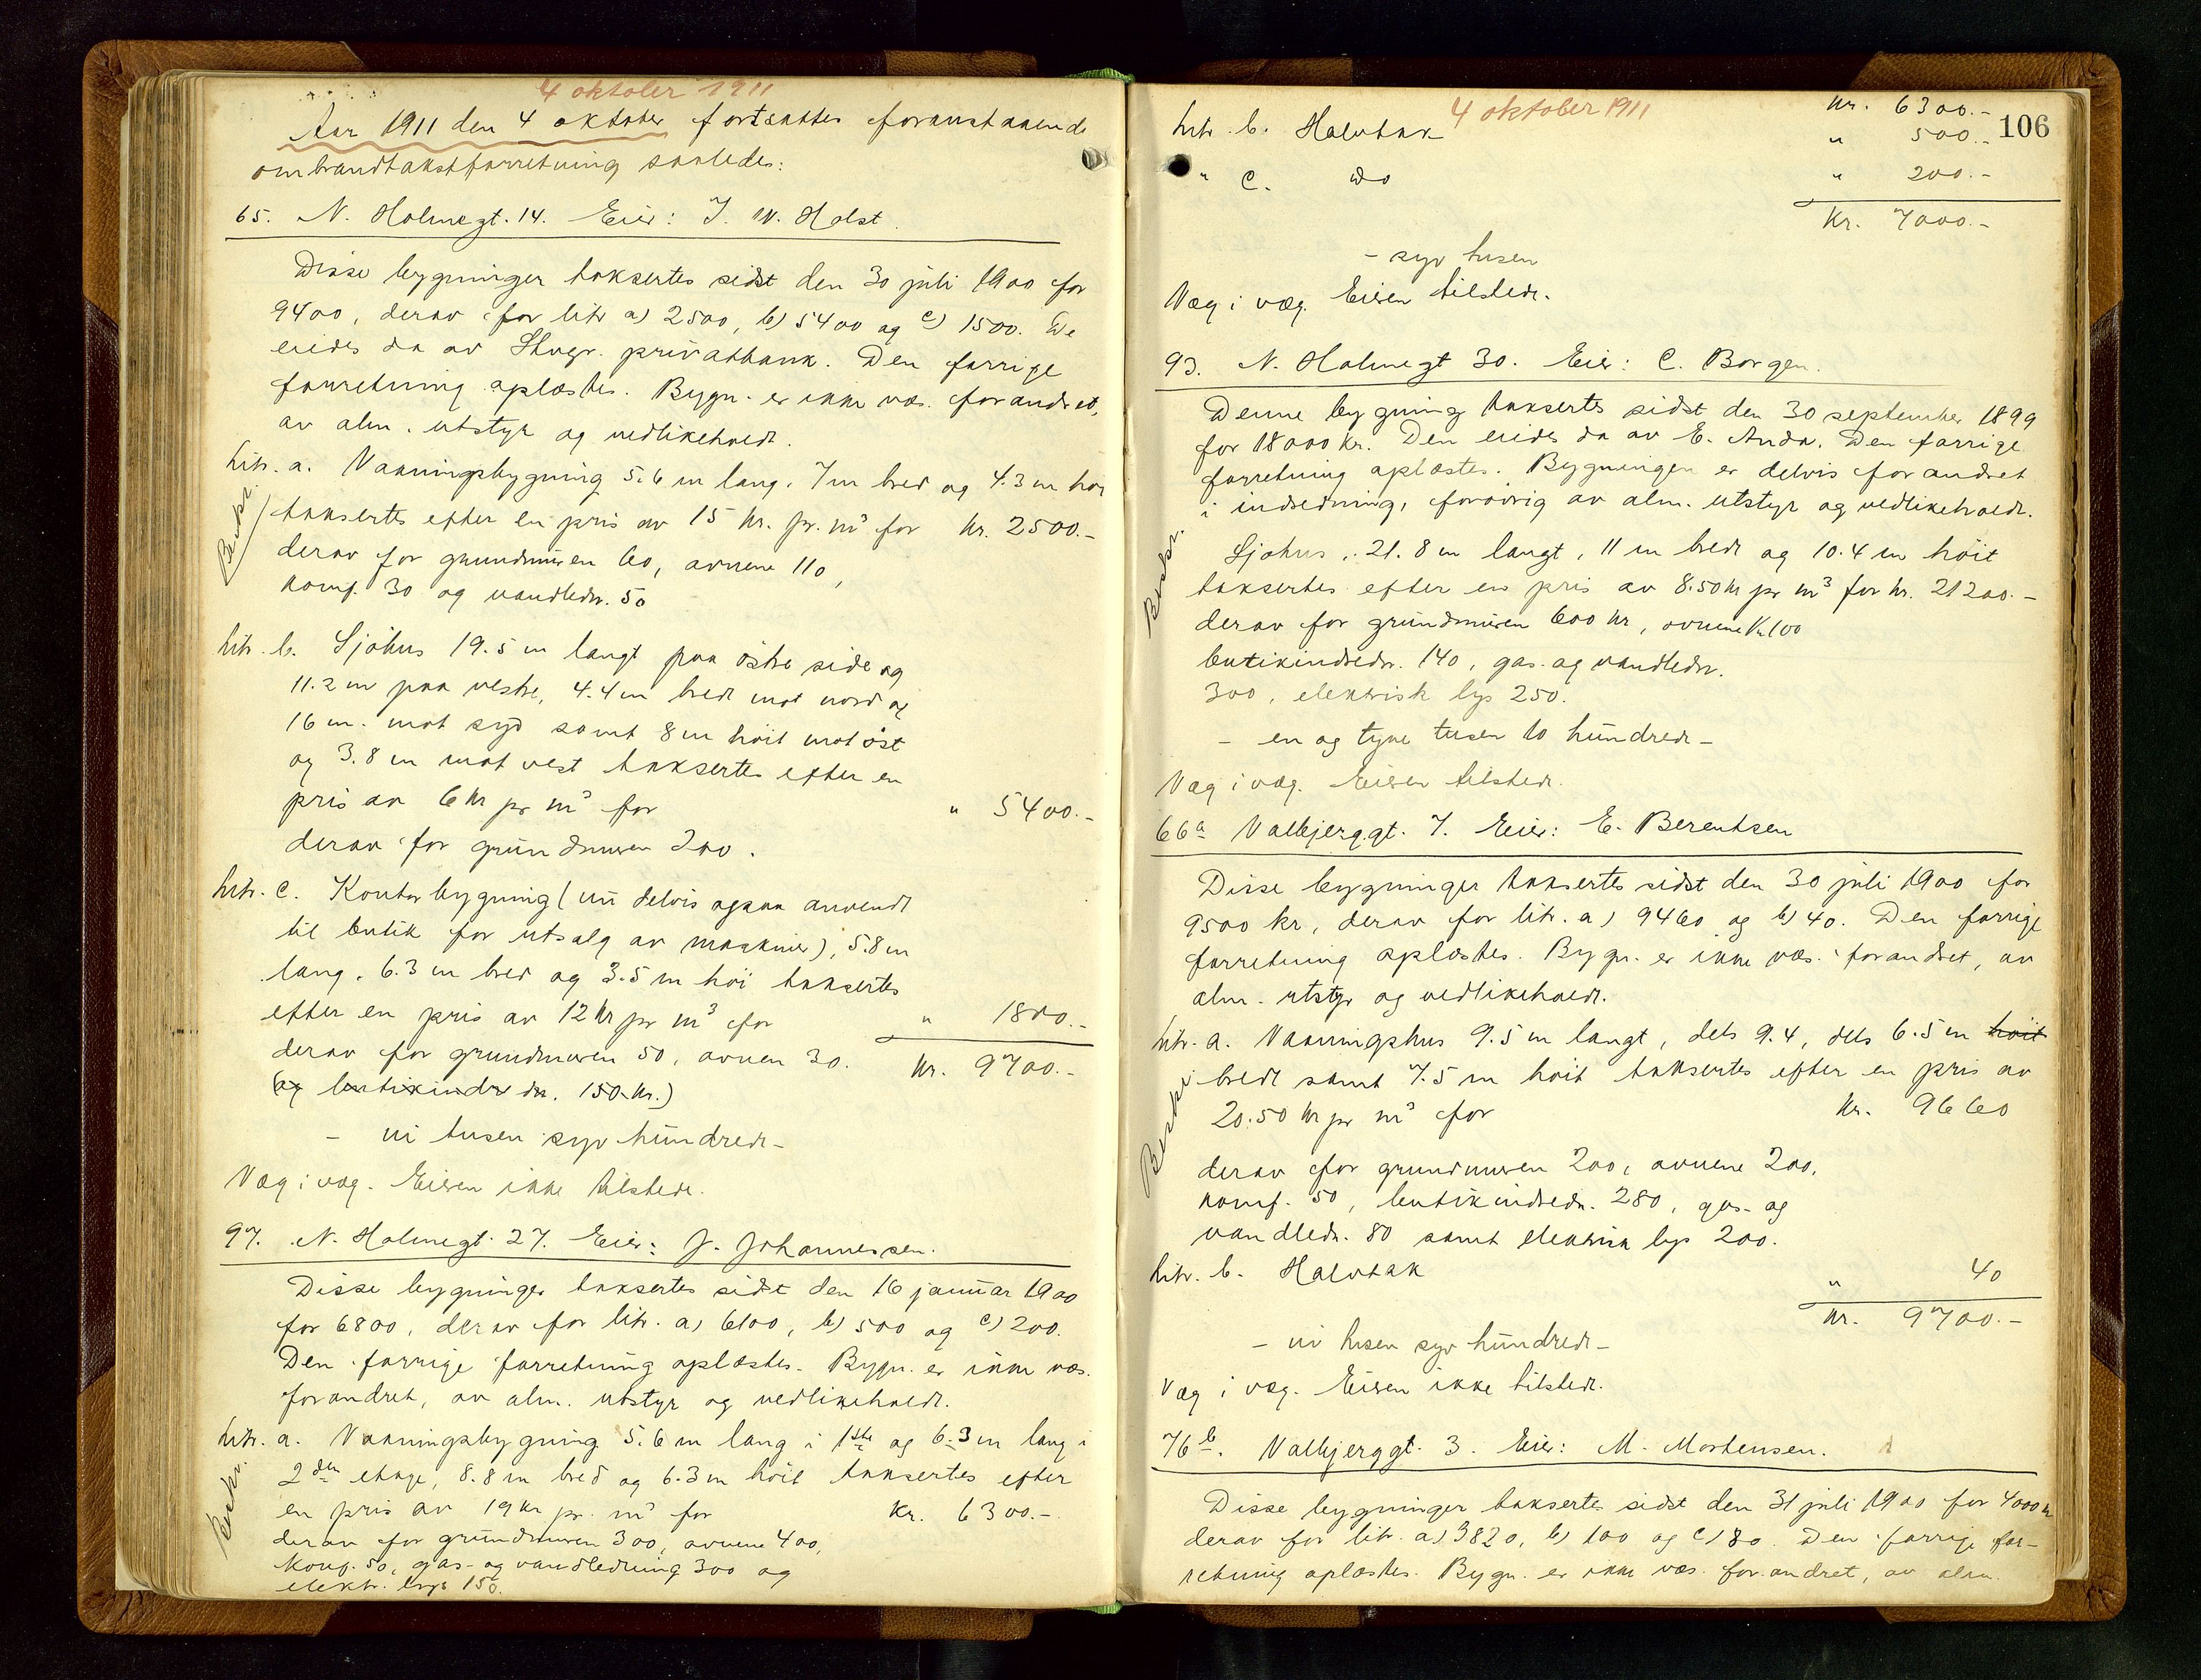 4 oktober 1911
Aar 1911 den 4 oktober fortsattes foranstaaende
ombrandtakstforretning saaledes:
65. N. Holmegt. 14. Eier: J. W. Holst.
Disse bygninger taksertes sidst den 30 juli 1900 for
9400, derav for litr a) 2500, b) 5400 og c) 1500. De
eiedes da av Stvgr. privatbank. Den forrige
forretning oplæstes. Bygn. er ikke væs. forandret,
av alm. utstyr og vedlikeholdt.
Litr. a. Vaaningsbygning 5.6 m lang, 7 m bred og 4.3 m høi
taksertes efter en pris av 15 kr. pr. m³ for kr. 2500.-
derav for grundmuren 60, ovnene 110,
komf. 30 og vandledn. 50
Beskr.
Litr. b. Sjøhus 19.5 m langt paa østre side og
11.2 m paa vestre, 4.4 m bredt mot nord og
16 m. mot syd samt 8 m høit mot øst
og 3.8 m mot vest taksertes efter en
pris av 6 kr pr m³ for " 5400.-
derav for grundmuren 200.
Litr. c. Kontorbygning (nu delvis ogsaa anvendt
til butik for utsalg av maskiner), 5.8 m
lang, 6.3 m bred og 3.5 m høi taksertes
efter en pris av 12 kr pr m³ for " 1800.-
derav for grundmuren 50, ovnen 30. Kr. 9700.-
(og butikindredn. 150 kr.)
- ni tusen syv hundrede -
Væg i væg. Eieren ikke tilstede.
97. N. Holmegt. 27. Eier: J. Johannessen.
Disse bygninger taksertes sidst den 16 januar 1900
for 6800, derav for litr. a) 6100, b) 500 og c) 200.
Den forrige forretning oplæstes. Bygn. er ikke væs.
forandret, av alm. utstyr og vedlikeholdt.
Litr. a. Vaaningsbygning 5.6 m lang i 1ste og 6.3 m lang i
2den etage, 8.8 m bred og 6.3 m høit taksertes efter
en pris av 19 kr pr. m³ for Kr. 6300.-
derav for grundmuren 300, ovnene 400,
komf. 50, gas- og vandledning 300 og
elektr. lys 150.
Beskr.
4 oktober 1911
106
Kr. 6300.-
Litr. b. Halvtak " 500.-
" c. do " 200.-
Kr. 7000.-
- syv tusen
Væg i væg. Eieren tilstede.
93. N. Holmegt 30. Eier: C. Borgen.
Denne bygning taksertes sidst den 30 september 1899
for 18000 kr. Den eiedes da av E. Anda. Den forrige
forretning oplæstes. Bygningen er delvis forandret
i indredning, forøvrig av alm. utstyr og vedlikeholdt.
Sjøhus, 21.8 m langt, 11 m bredt og 10.4 m høit
taksertes efter en pris av 8.50 kr pr m³ for kr. 21200.-
derav for grundmuren 600 kr, ovnene kr 100
butikindredn. 140, gas- og vandledn.
300, elektrisk lys 250.
Beskr.
- en og tyve tusen to hundrede -
Væg i væg. Eieren tilstede.
66a Valbjerggt. 7. Eier: E. Berentsen
Disse bygninger taksertes sidst den 30 juli 1900 for
9500 kr, derav for litr. a) 9460 og b) 40. Den forrige
forretning oplæstes. Bygn. er ikke væs. forandret, av
alm. utstyr og vedlikeholdt.
Litr. a. Vaaningshus 9.5 m langt, dels 9.4, dels 6.5 m høit
bredt samt 7.5 m høit taksertes efter en pris av
20.50 kr pr m³ for Kr. 9660
derav for grundmuren 200, ovnene 200,
komf. 50, butikindredn. 280, gas- og
vandledn. 80 samt elektrisk lys 200.
Beskr.
Litr. b. Halvtak " 40
Kr. 9700.-
- ni tusen syv hundrede -
Væg i væg. Eieren ikke tilstede.
76b. Valbjerggt. 3. Eier: M. Mortensen.
Disse bygninger taksertes sidst den 31 juli 1900 for 4000 kr
derav for litr. a) 3820, b) 100 og c) 80. Den forrige for-
retning oplæstes. Bygn. er ikke væs. forandret, av alm.